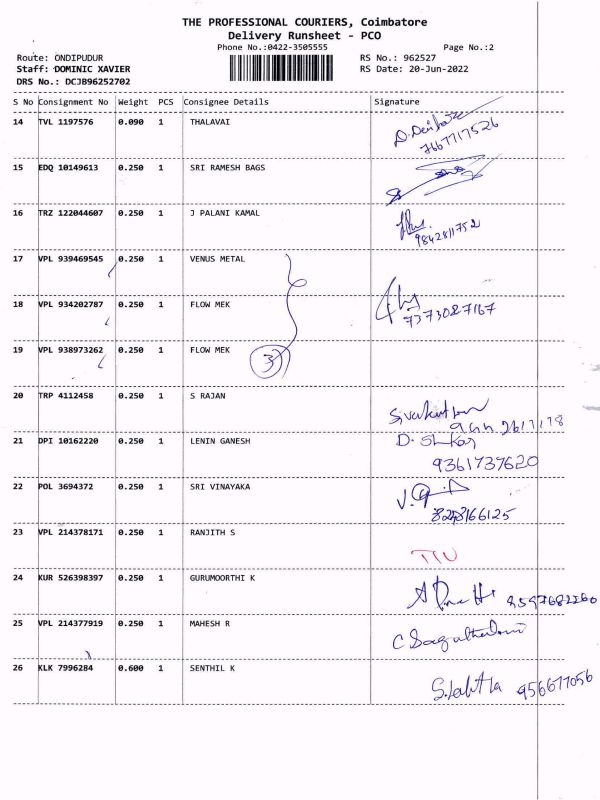 THE PROFESSIONAL COURIERS, Coimbatore
Delivery Runsheet - PCO
Phone No.:0422-3505555 Page No.:2
Route: ONDIPUDUR RS No.: 962527
Staff: DOMINIC XAVIER RS Date: 20-Jun-2022
DRS No.: DCJB96252702
S No Consignment No Weight PCS Consignee Details Signature
14 TVL 1197576 0.090 1 THALAVAI
7667717526
15 EDQ 10149613 0.250 1 SRI RAMESH BAGS
16 TRZ 122044607 0.250 1 J PALANI KAMAL
9842811752
17 VPL 939469545 0.250 1 VENUS METAL
18 VPL 934202787 0.250 1 FLOW MEK
7373027167
19 VPL 938973262 0.250 1 FLOW MEK
3
20 TRP 4112458 0.250 1 S RAJAN
21 DPI 10162220 0.250 1 LENIN GANESH
9361737620
22 POL 3694372 0.250 1 SRI VINAYAKA
23 VPL 214378171 0.250 1 RANJITH S
24 KUR 526398397 0.250 1 GURUMOORTHI K
25 VPL 214377919 0.250 1 MAHESH R
26 KLK 7996284 0.600 1 SENTHIL K